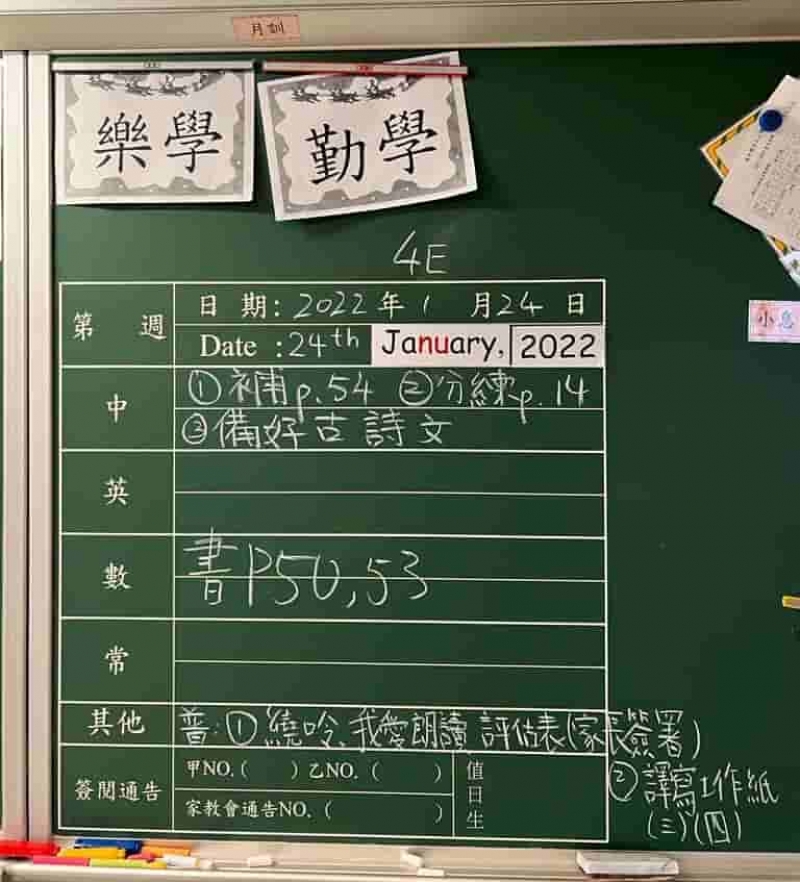 月訓
樂學
勤學
4E
第 週
日 期: 2022 年 1 月 24 日
Date : 24th January, 2022
中
① 補 p.54 ② 分練 p.14
③ 備好古詩文
英
數
書 P50,53
常
其他
普: ① 繞呤、我愛朗讀 評估表(家長簽署)
② 譯寫工作紙
(三)(四)
簽閱通告
甲NO.( ) 乙NO. ( )
家教會通告NO. ( )
值日生
小息